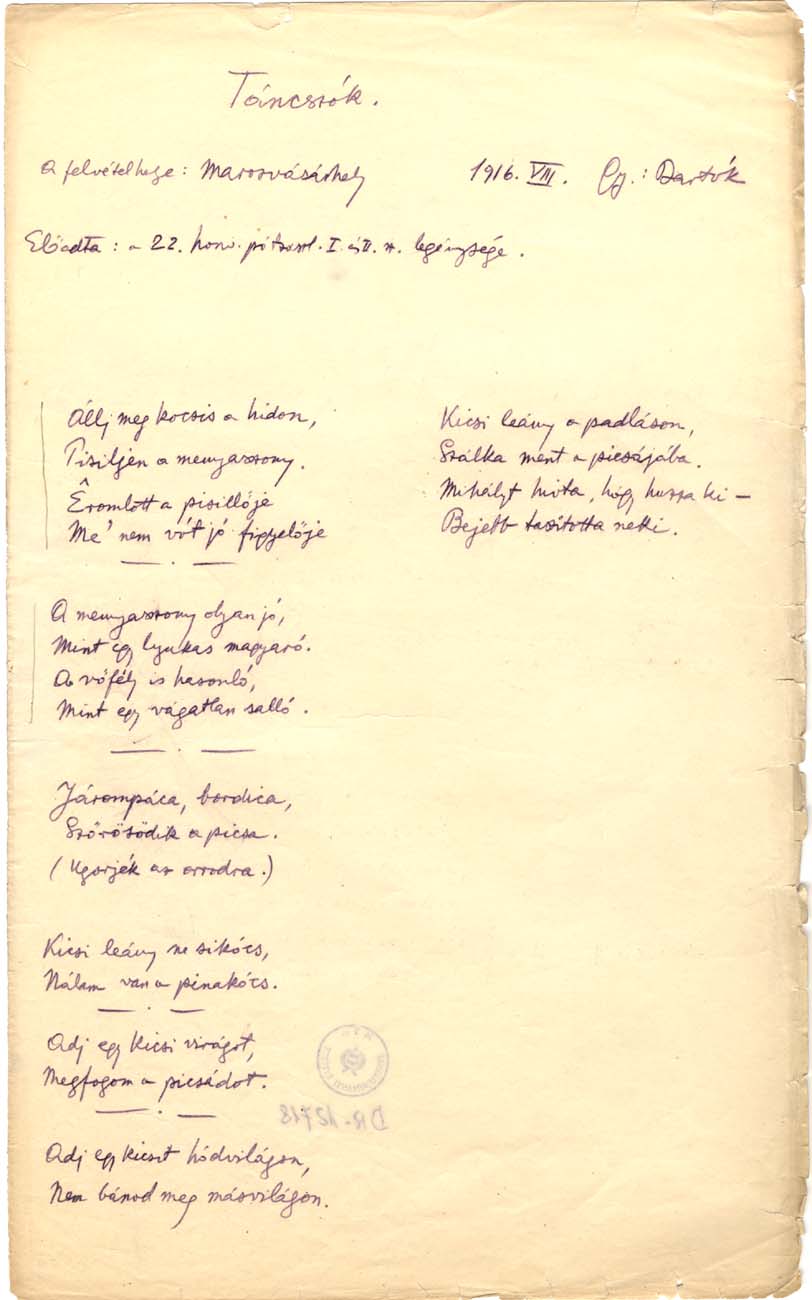 Táncszók.
A felvétel helye: Marosvásárhely 1916. VIII. Gy.: Bartók
Előadta: a 22. honv. pótzászl. I. és II. sz. legénysége.
Állj meg kocsis a hidon,
Pisiljen a menyasszony.
Êromlott a pisillője
Me' nem vót jó figyelője
A menyasszony olyan jó,
Mint egy lyukas magyaró.
A vőfély is hasonló,
Mint egy vágatlan salló.
Járompáca, bordica,
Szőrösödik a picsa.
(Ugorjék az orrodra.)
Kicsi leány ne sikócs,
Nálam van a pinakócs.
Adj egy kicsi virágot,
Megfogom a picsádot.
Adj egy kicsit hódvilágon,
Nem bánod meg másvilágon.
Kicsi leány a padláson,
Szálka ment a picsájába.
Mihályt hivta, hogy huzza ki –
Bejebb taszitotta neki.
DR-12718